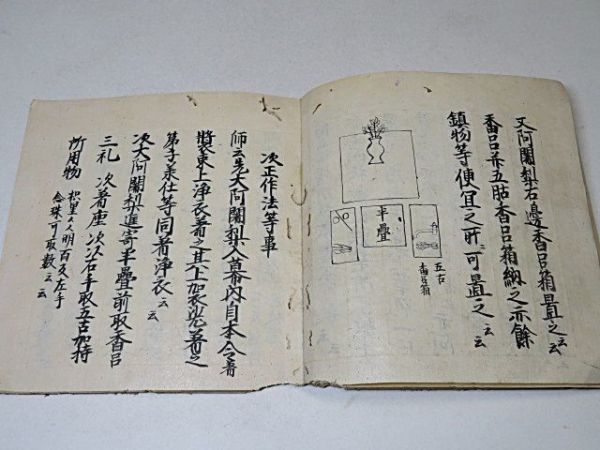 又阿闍梨右邊香呂箱置之云云
香呂并五股香呂箱納之亦餘
鎮物等便宜之所ニ可置之云云
半疊
五古
香呂箱
次正作法等事
師云先大阿闍梨入幕内自本令着
装束上浄衣着之其上加衣
弟子兼仕等同着浄衣云云
次大阿闍梨進寄半疊前取香呂
三礼 次着座 次以右手取五古加持
所用物
明百文左手
念珠ヲ可取數云云